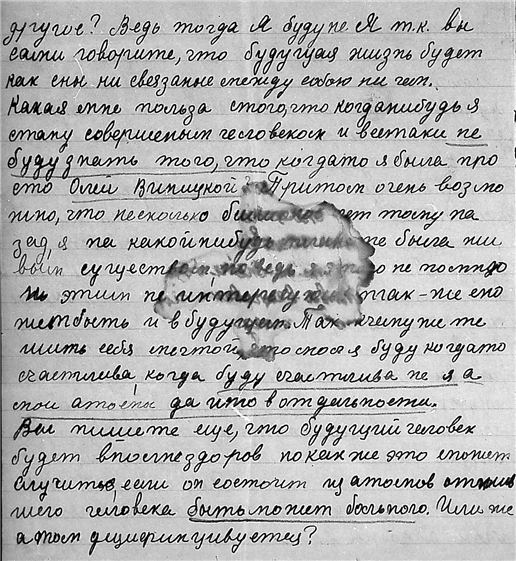 другое? Ведь тогда Я буду не Я т.к. вы
сами говорите, что будущая жизнь будет
как сны ни связаные между собою ни чем.
Какая мне польза с того, что когданибудь я
стану совершеным человеком и всетаки не
буду знать того, что когдато я была про
сто Олей Виницкой? Притом очень возмо
жно, что несколько лет тому на
зад, я на какойнибудь же была жи
вым существом, но ведь я этого не помню
и этим не интересуюсь так-же мо
жет быть и в будущем. Так к чему же те
шить себя мечтой, что мол я буду когдато
счастлива, когда буду счастлива не я а
мои атомы да и то в отдельности.
Вы пишете еще, что будущий человек
будет вполне здоров но как же это может
случиться, если он состоит из атомов
шего человека быть может больного. Или же
атом дизинфицируется?